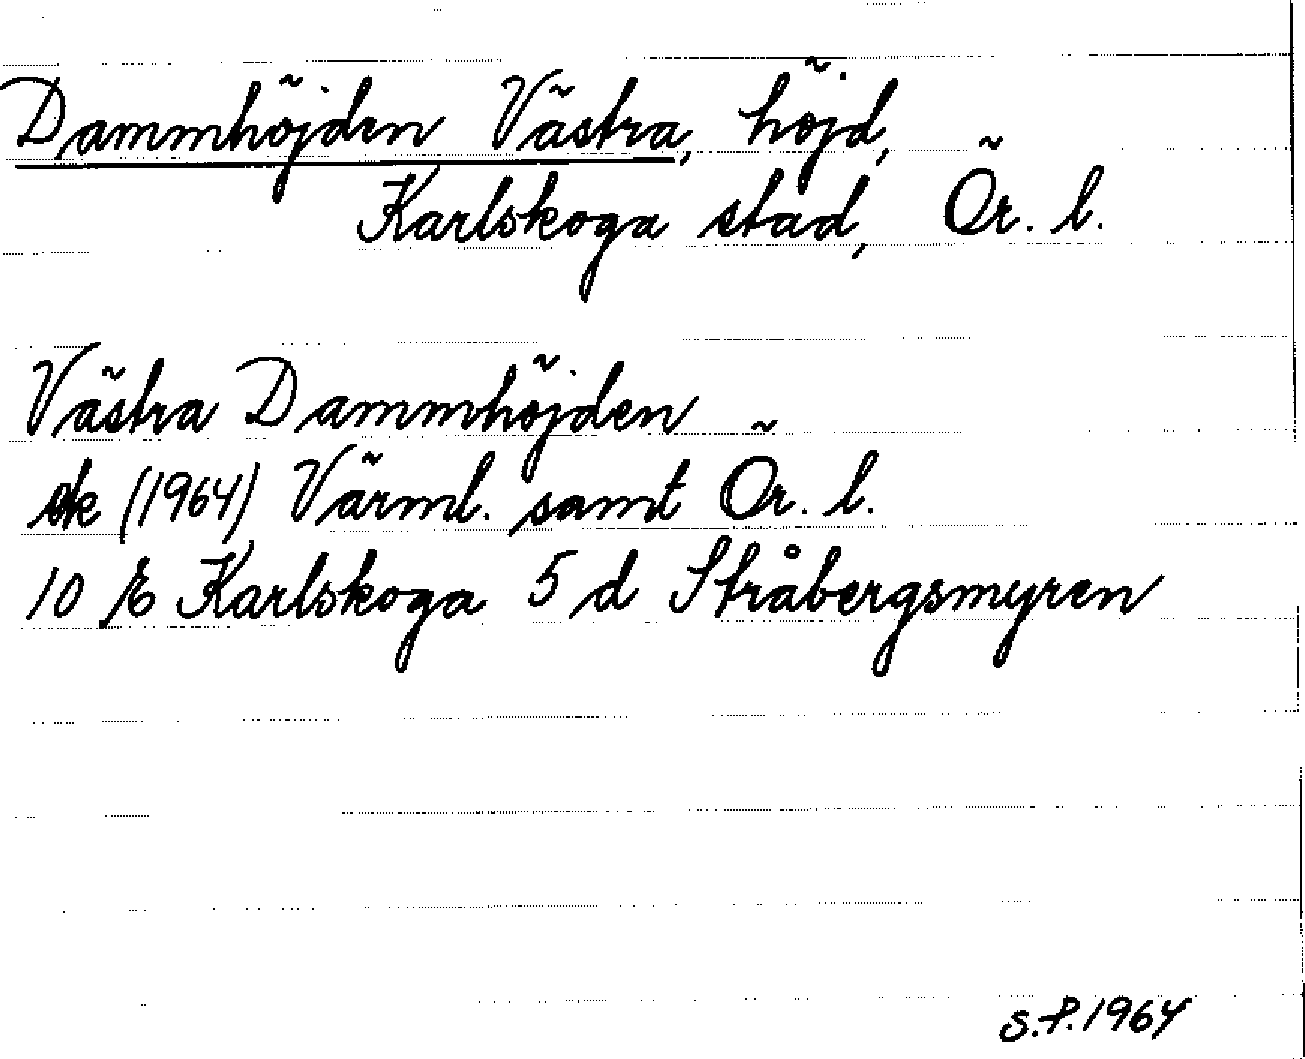 Dammhöjden Västra, höjd,
Karlskoga stad, Ör. l.
Västra Dammhöjden
ek (1964) Värml. samt Ör. l.
10 E Karlskoga 5 d Stråbergsmyren
S.P. 1964